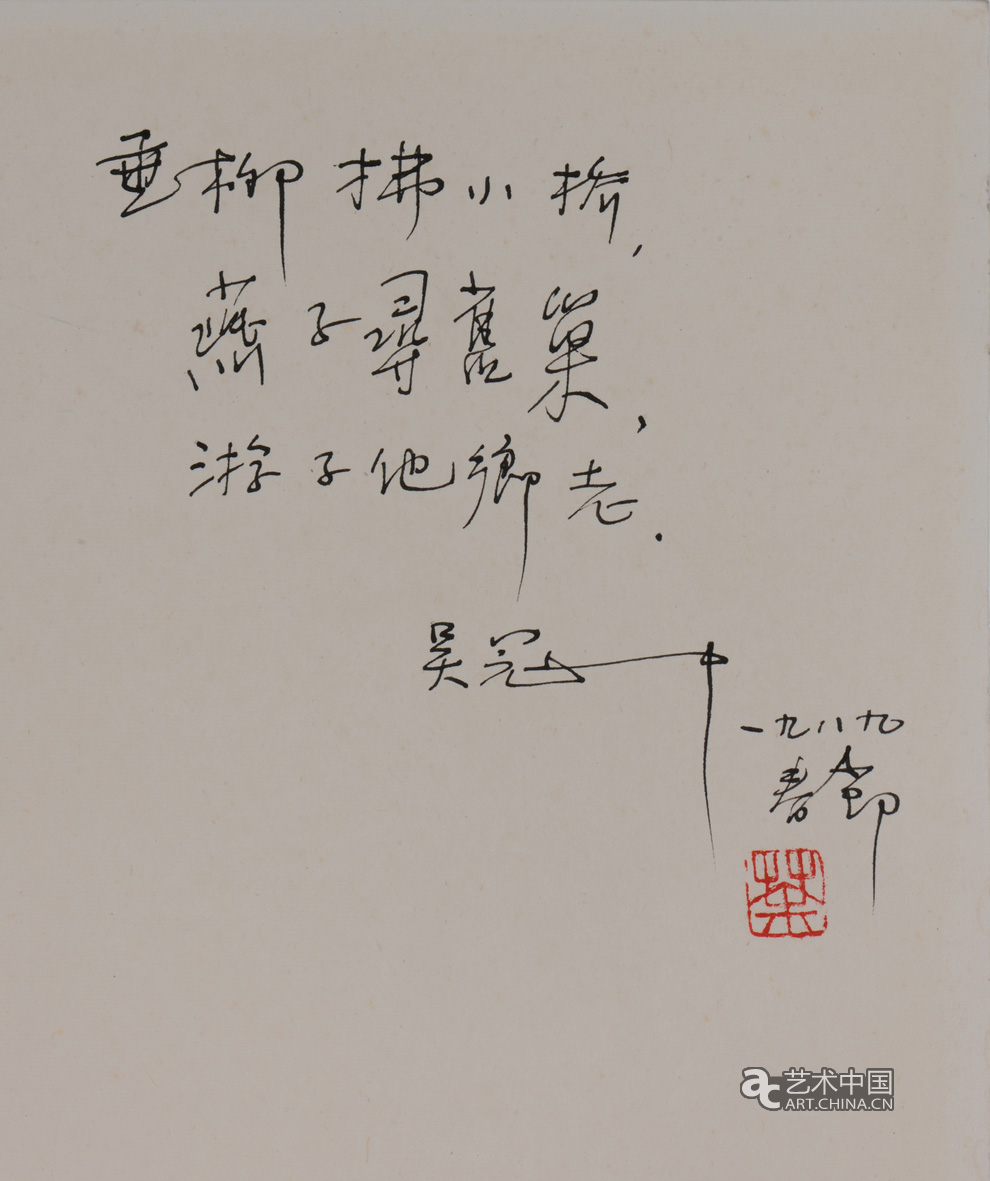 垂柳拂小桥，
燕子寻舊巢，
游子他鄉老．
吴冠中
一九八九
春節
荼
艺术中国
ART.CHINA.CN